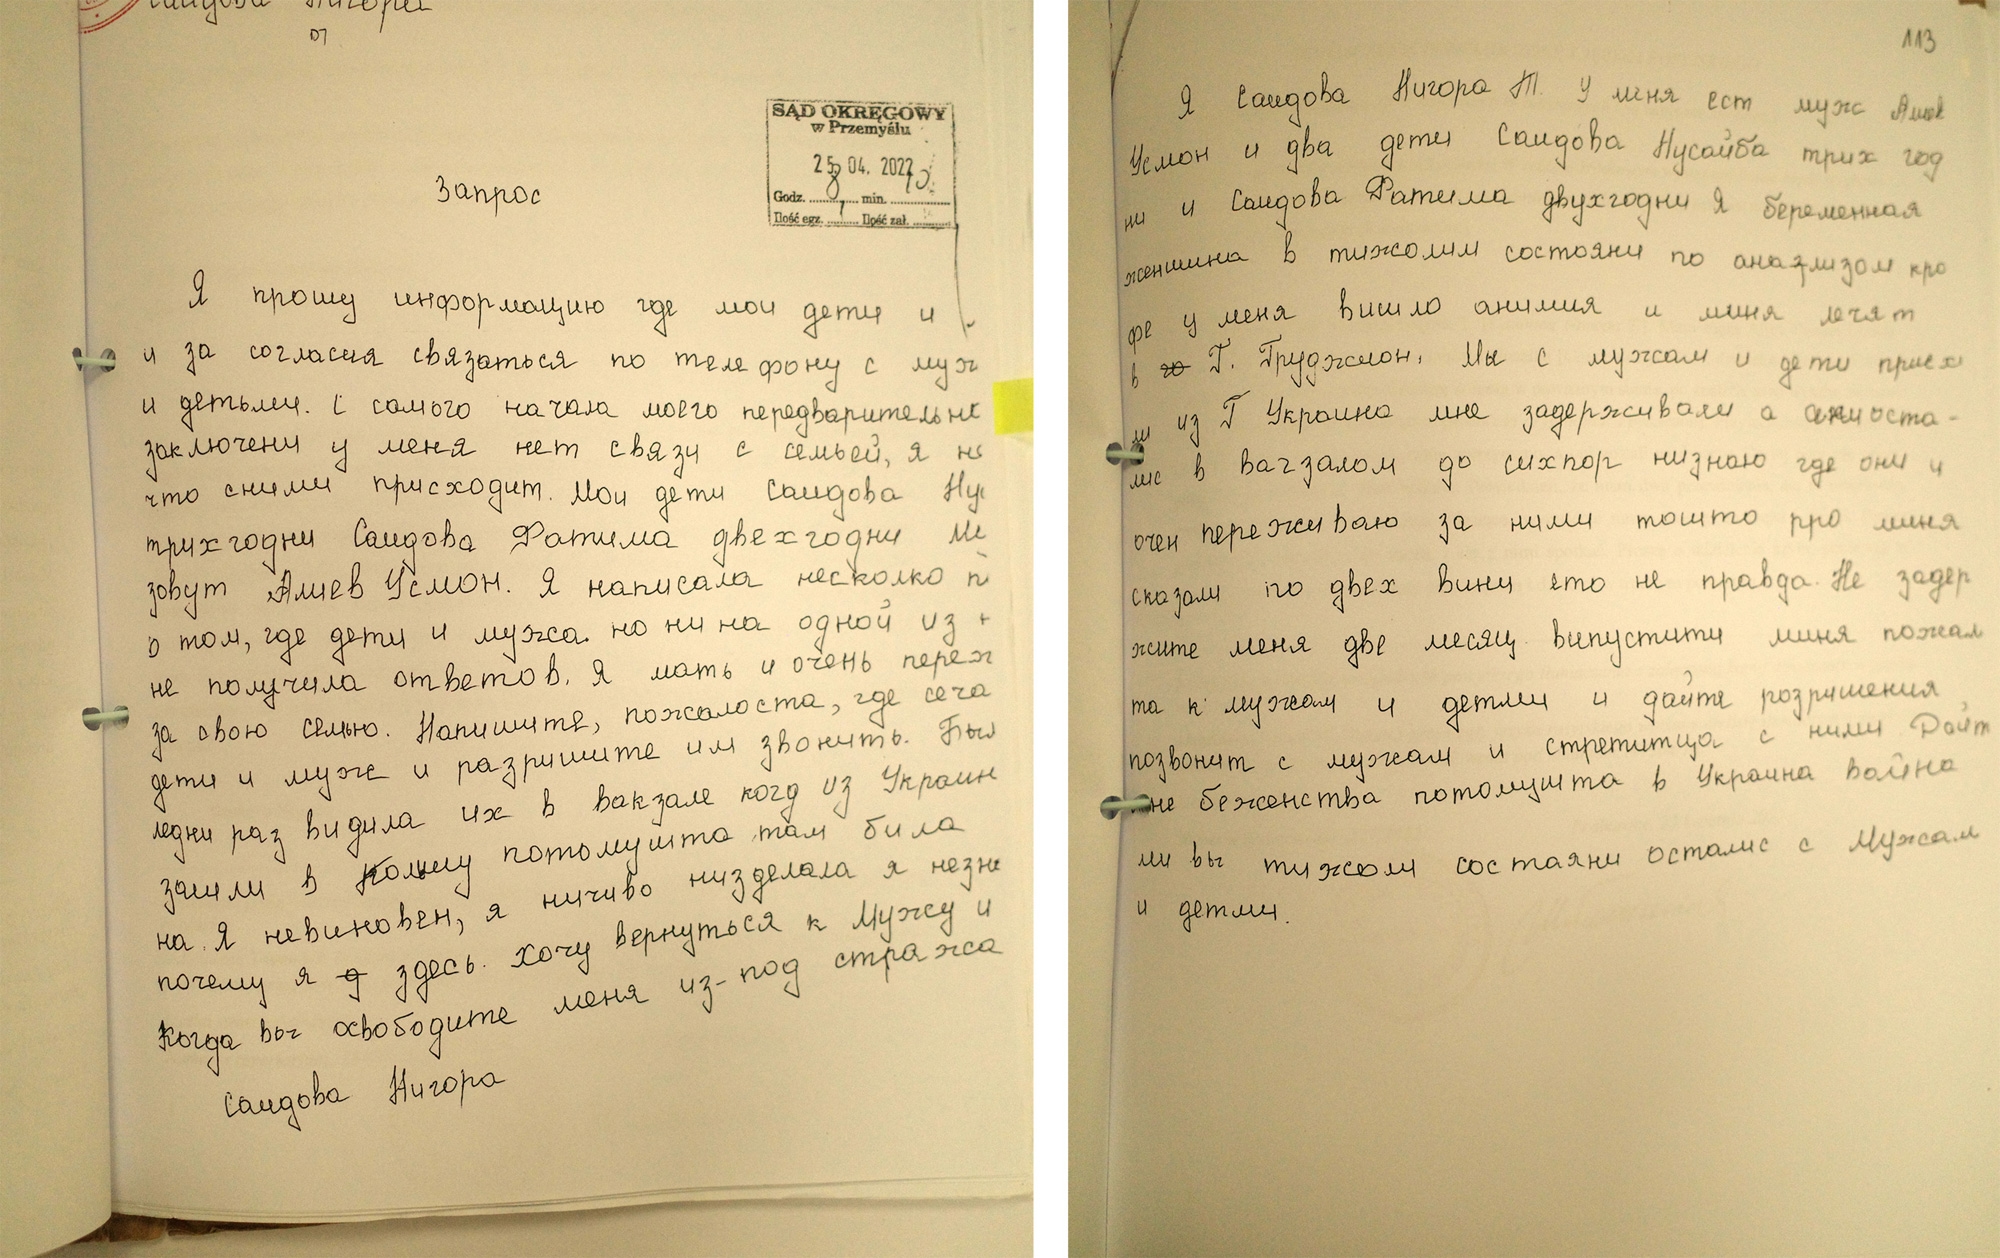 саидова Нигора
SĄD OKRĘGOWY
w Przemyślu
25 04. 2022
Godz. 8 min. 10
Ilość egz. 1 Ilość zał.
Запрос
Я прошу информацию где мои дети и
и за согласия связаться по телефону с муж
и детьми. С самого начала моего передварительн
заключени у меня нет связи с семьей, я не
что сними присходит. Мои дети Саидова Нус
трихгодни Саидова Фатима двехгодни М
зовут Алиев Усмон. Я написала несколко п
о том, где дети и мужа. но ни на одной из
не получила ответов. Я мать и очень переж
за свою семью. Напишите, пожалоста, где сеча
дети и муж и разришите им звонить. Был
ледни раз видила их в вакзале когд из Украин
зашли в Полшу потомушто там била
на. Я невиновен, я ничиво низделала я незна
почему я здесь. хочу вернуться к Мужу и
Когда вы освободите меня из-под стража
Саидова Нигора
113
Я Саидова Нигора Т. У меня ест муж Алиев
Усмон и два дети Саидова Нусайба трих год
ни и Саидова Фатима двухгодни Я беременная
женшина в тижолим состояни по анализом кро
фе у меня вишло анимия и миня лечят
в Г. Груджион. Мы с мужам и дети приех
ли из Г Украина мне задерживали а они оста-
лис в вагзалом до сихпор низнаю где они и
очен переживаю за ними тошто про миня
сказали по двех вини ето не правда. Не задер
жите меня две месяц випустити миня пожал
та к мужам и детми и дайте розришения
позвонит с мужам и стретитца с ними Дайт
мне беженства потомушта в Украина война
ми вы тижоли состаяни осталис с Мужам
и детми.